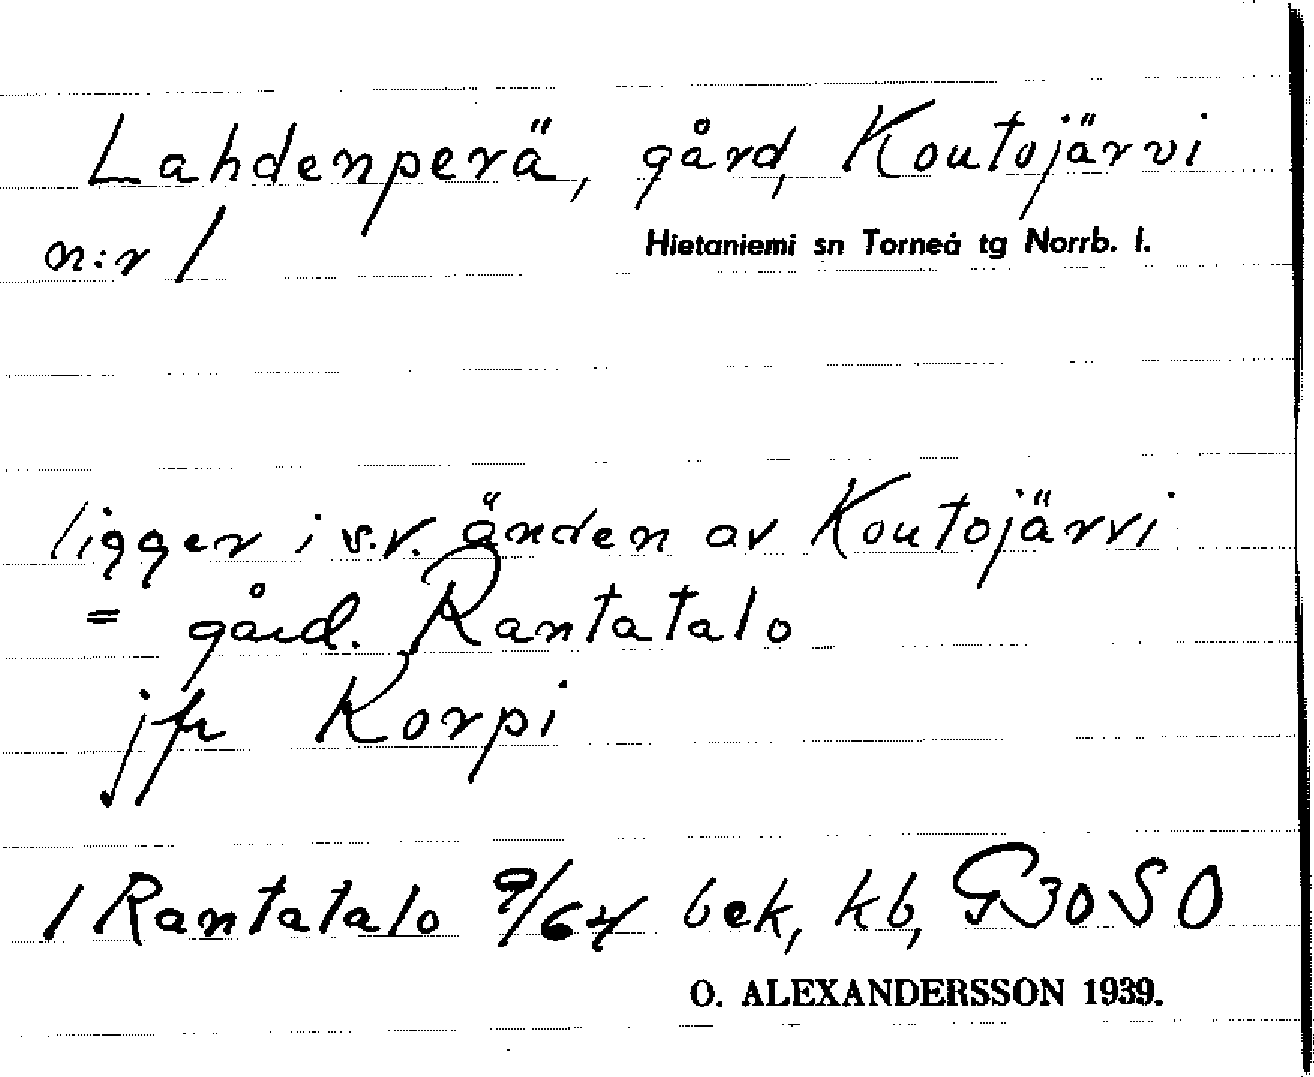 Lahdenperä, gård, Koutojärvi
n:r 1
Hietaniemi sn Torneå tg Norrb. l.
ligger i s.v. änden av Koutojärvi
= gård. Rantatalo
jfr Korpi
1 Rantatalo 9/64 bek, kb, G30SO
O. ALEXANDERSSON 1939.